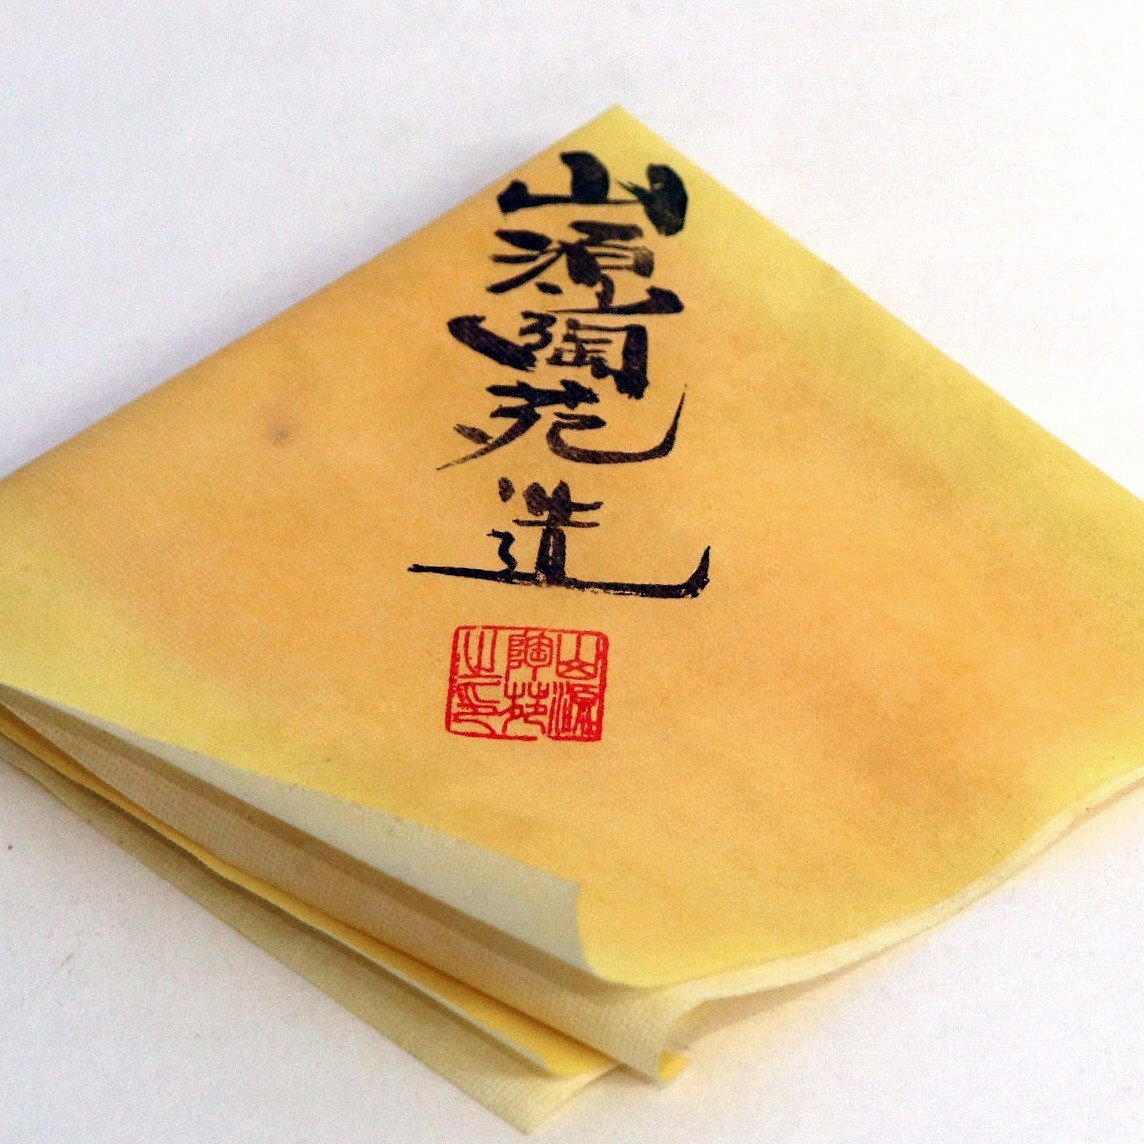 山源陶苑造
山源
陶苑
之印